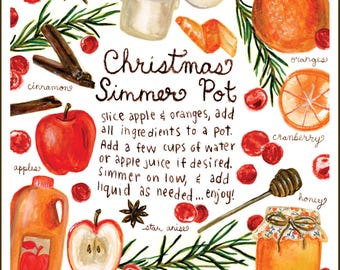 oranges
Christmas
cinnamon
Simmer Pot
slice apple & oranges, add
all ingredients to a pot.
Add a few cups of water
or apple juice if desired.
Simmer on low, & add
liquid as needed...enjoy!
cranberry
apples
honey
star anise